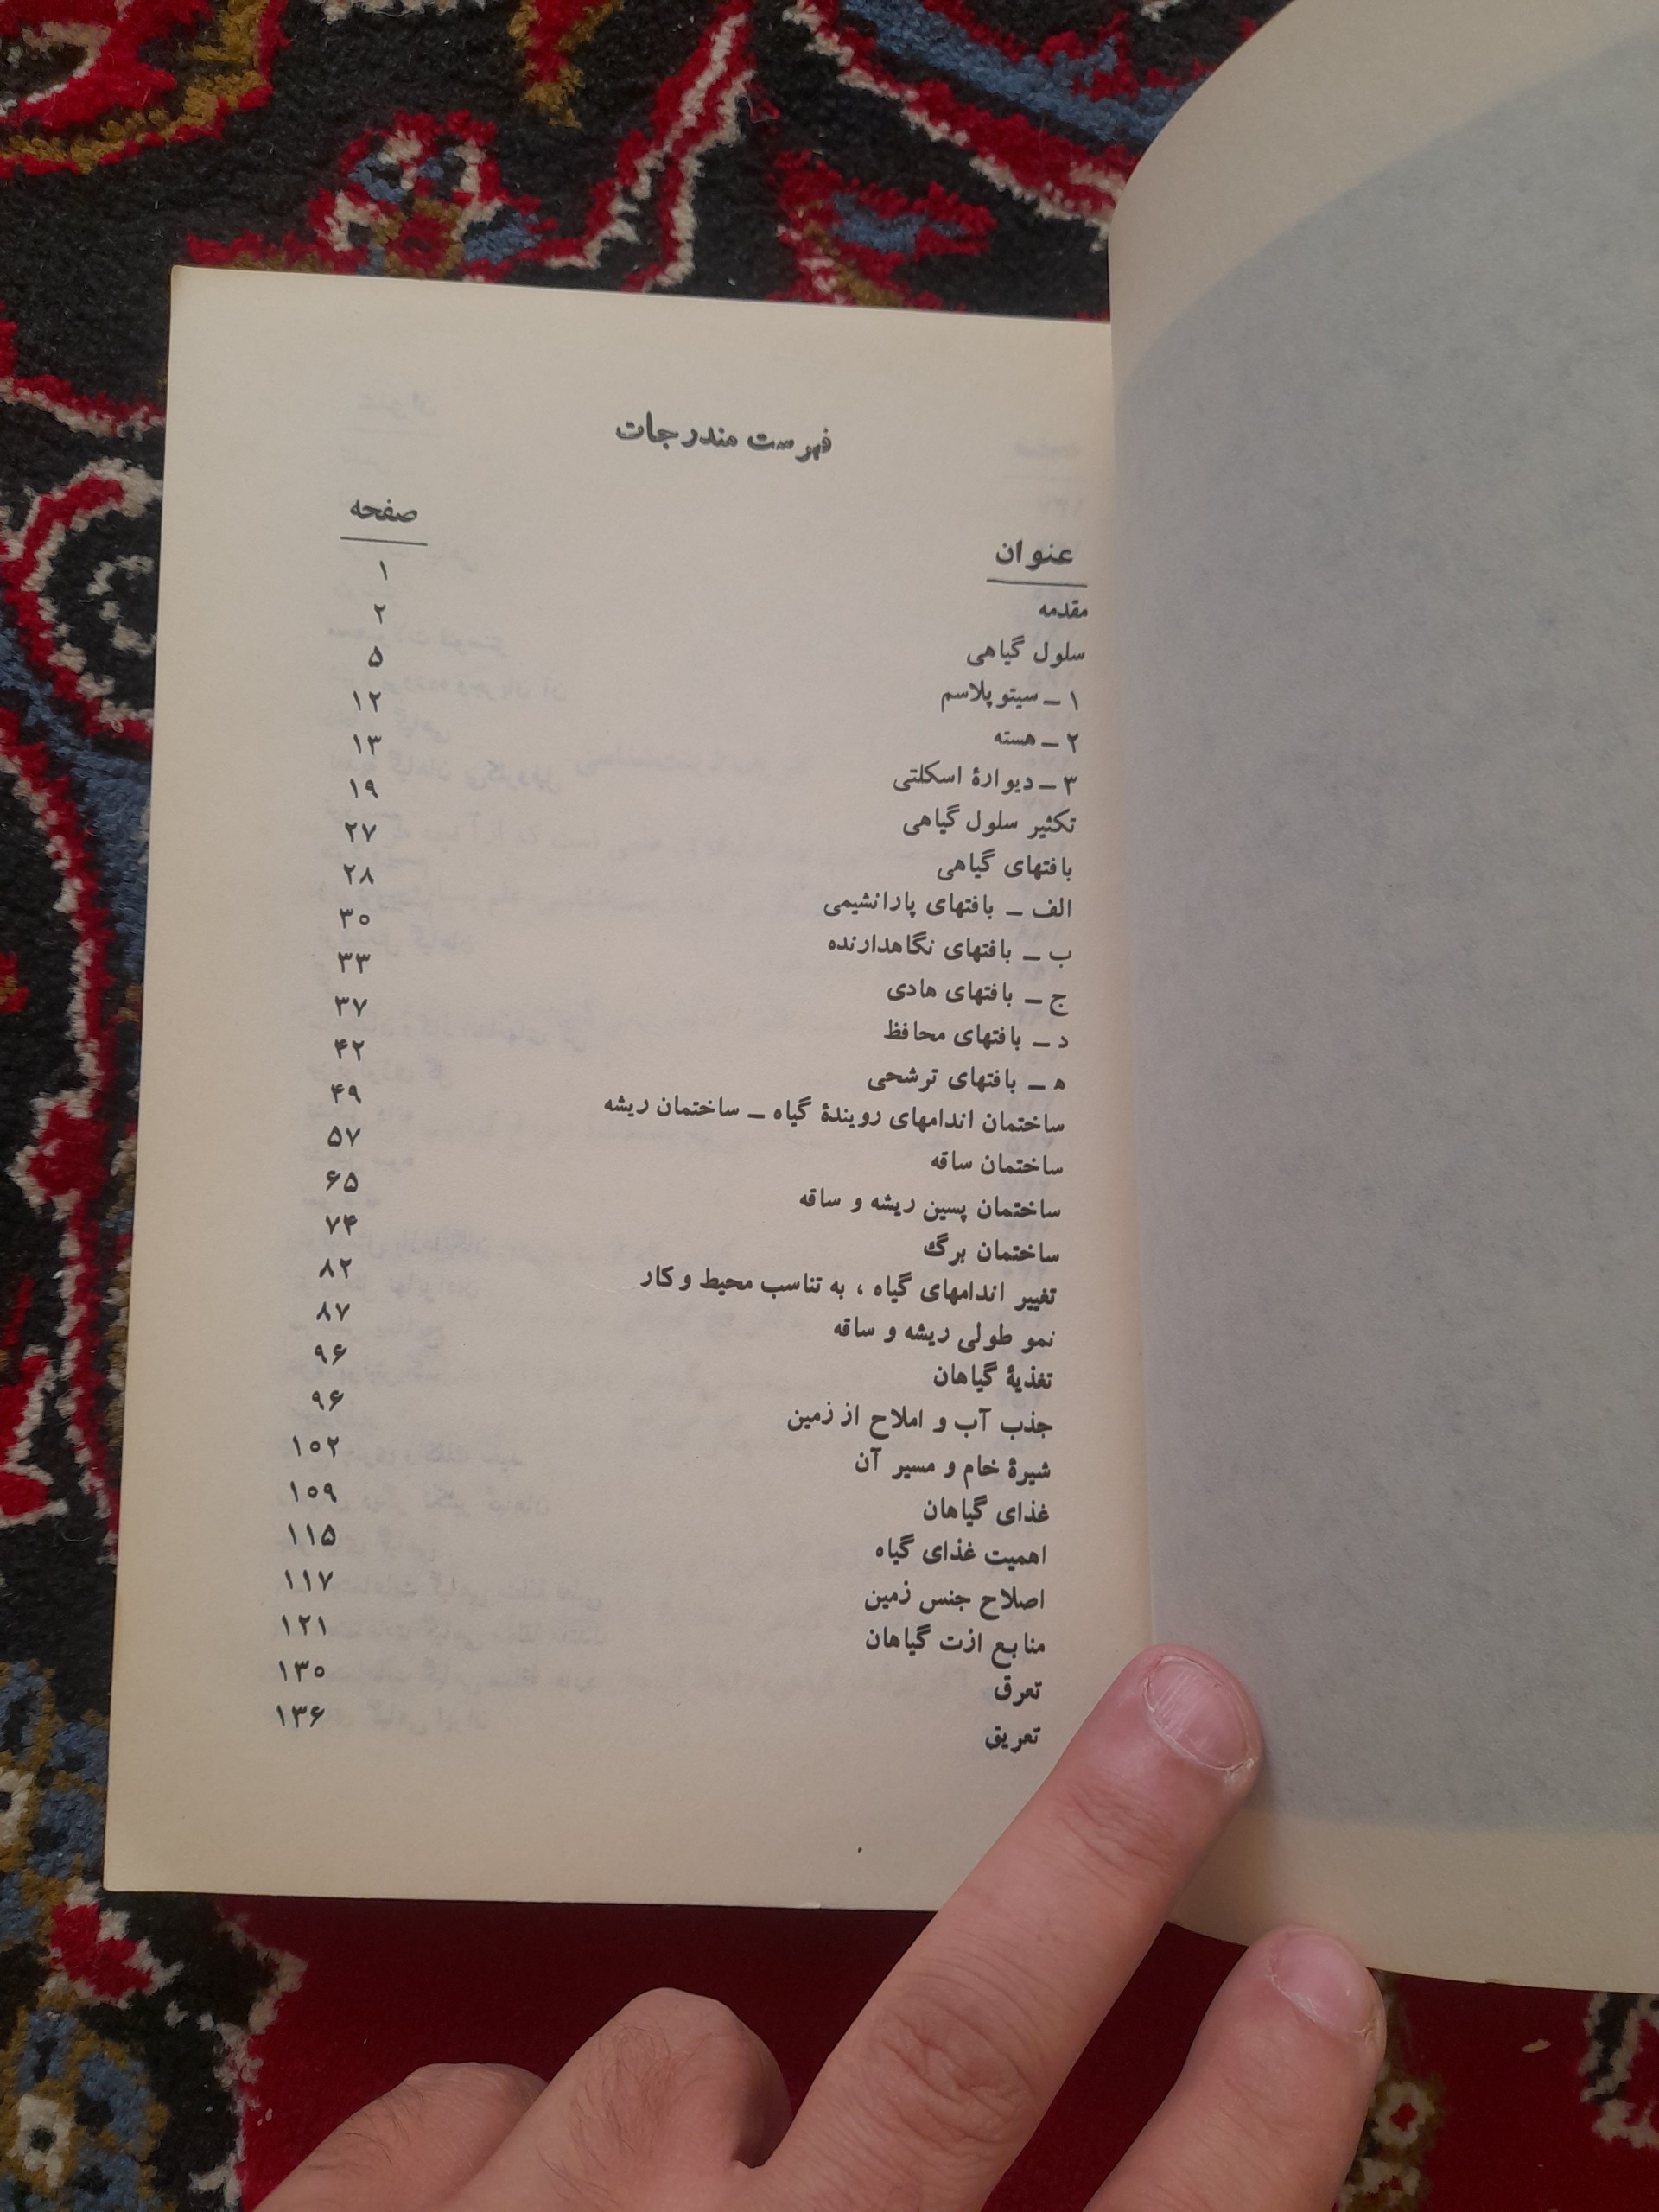 فهرست مندرجات
عنوان صفحه
مقدمه ۱
سلول گیاهی ۲
۱ ـ سیتوپلاسم ۵
۲ ـ هسته ۱۲
۳ ـ دیوارهٔ اسکلتی ۱۳
تکثیر سلول گیاهی ۱۹
بافتهای گیاهی ۲۷
الف ـ بافتهای پارانشیمی ۲۸
ب ـ بافتهای نگاهدارنده ۳۰
ج ـ بافتهای هادی ۳۳
د ـ بافتهای محافظ ۳۷
ه ـ بافتهای ترشحی ۴۲
ساختمان اندامهای رویندهٔ گیاه ـ ساختمان ریشه ۴۹
ساختمان ساقه ۵۷
ساختمان پسین ریشه و ساقه ۶۵
ساختمان برگ ۷۴
تغییر اندامهای گیاه ، به تناسب محیط و کار ۸۲
نمو طولی ریشه و ساقه ۸۷
تغذیهٔ گیاهان ۹۶
جذب آب و املاح از زمین ۹۶
شیرهٔ خام و مسیر آن ۱۰۲
غذای گیاهان ۱۰۹
اهمیت غذای گیاه ۱۱۵
اصلاح جنس زمین ۱۱۷
منابع ازت گیاهان ۱۲۱
تعرق ۱۳۰
تعریق ۱۳۶